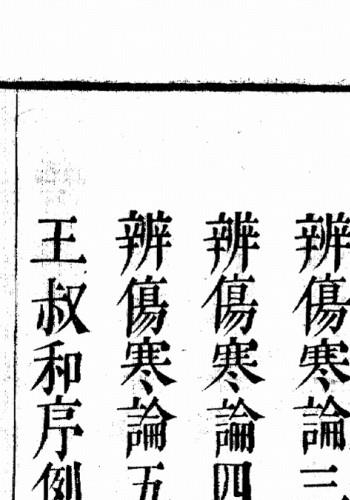 辨傷寒論三
辨傷寒論四
辨傷寒論五
王叔和序例